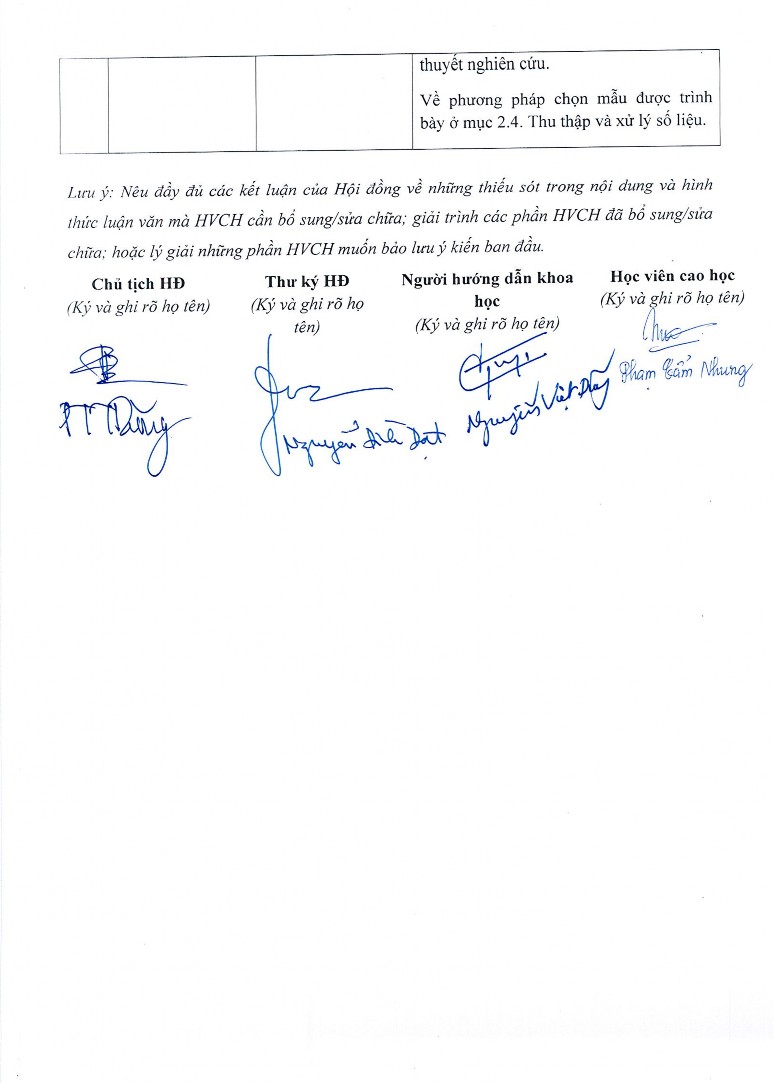 thuyết nghiên cứu.
Về phương pháp chọn mẫu được trình
bày ở mục 2.4. Thu thập và xử lý số liệu.
Lưu ý: Nêu đầy đủ các kết luận của Hội đồng về những thiếu sót trong nội dung và hình
thức luận văn mà HVCH cần bổ sung/sửa chữa; giải trình các phần HVCH đã bổ sung/sửa
chữa; hoặc lý giải những phần HVCH muốn bảo lưu ý kiến ban đầu.
Chủ tịch HĐ
(Ký và ghi rõ họ tên)
Thư ký HĐ
(Ký và ghi rõ họ
tên)
Người hướng dẫn khoa
học
(Ký và ghi rõ họ tên)
Học viên cao học
(Ký và ghi rõ họ tên)
Nguyễn Đạt
Nguyễn Việt Dũng
Phạm Cẩm Nhung